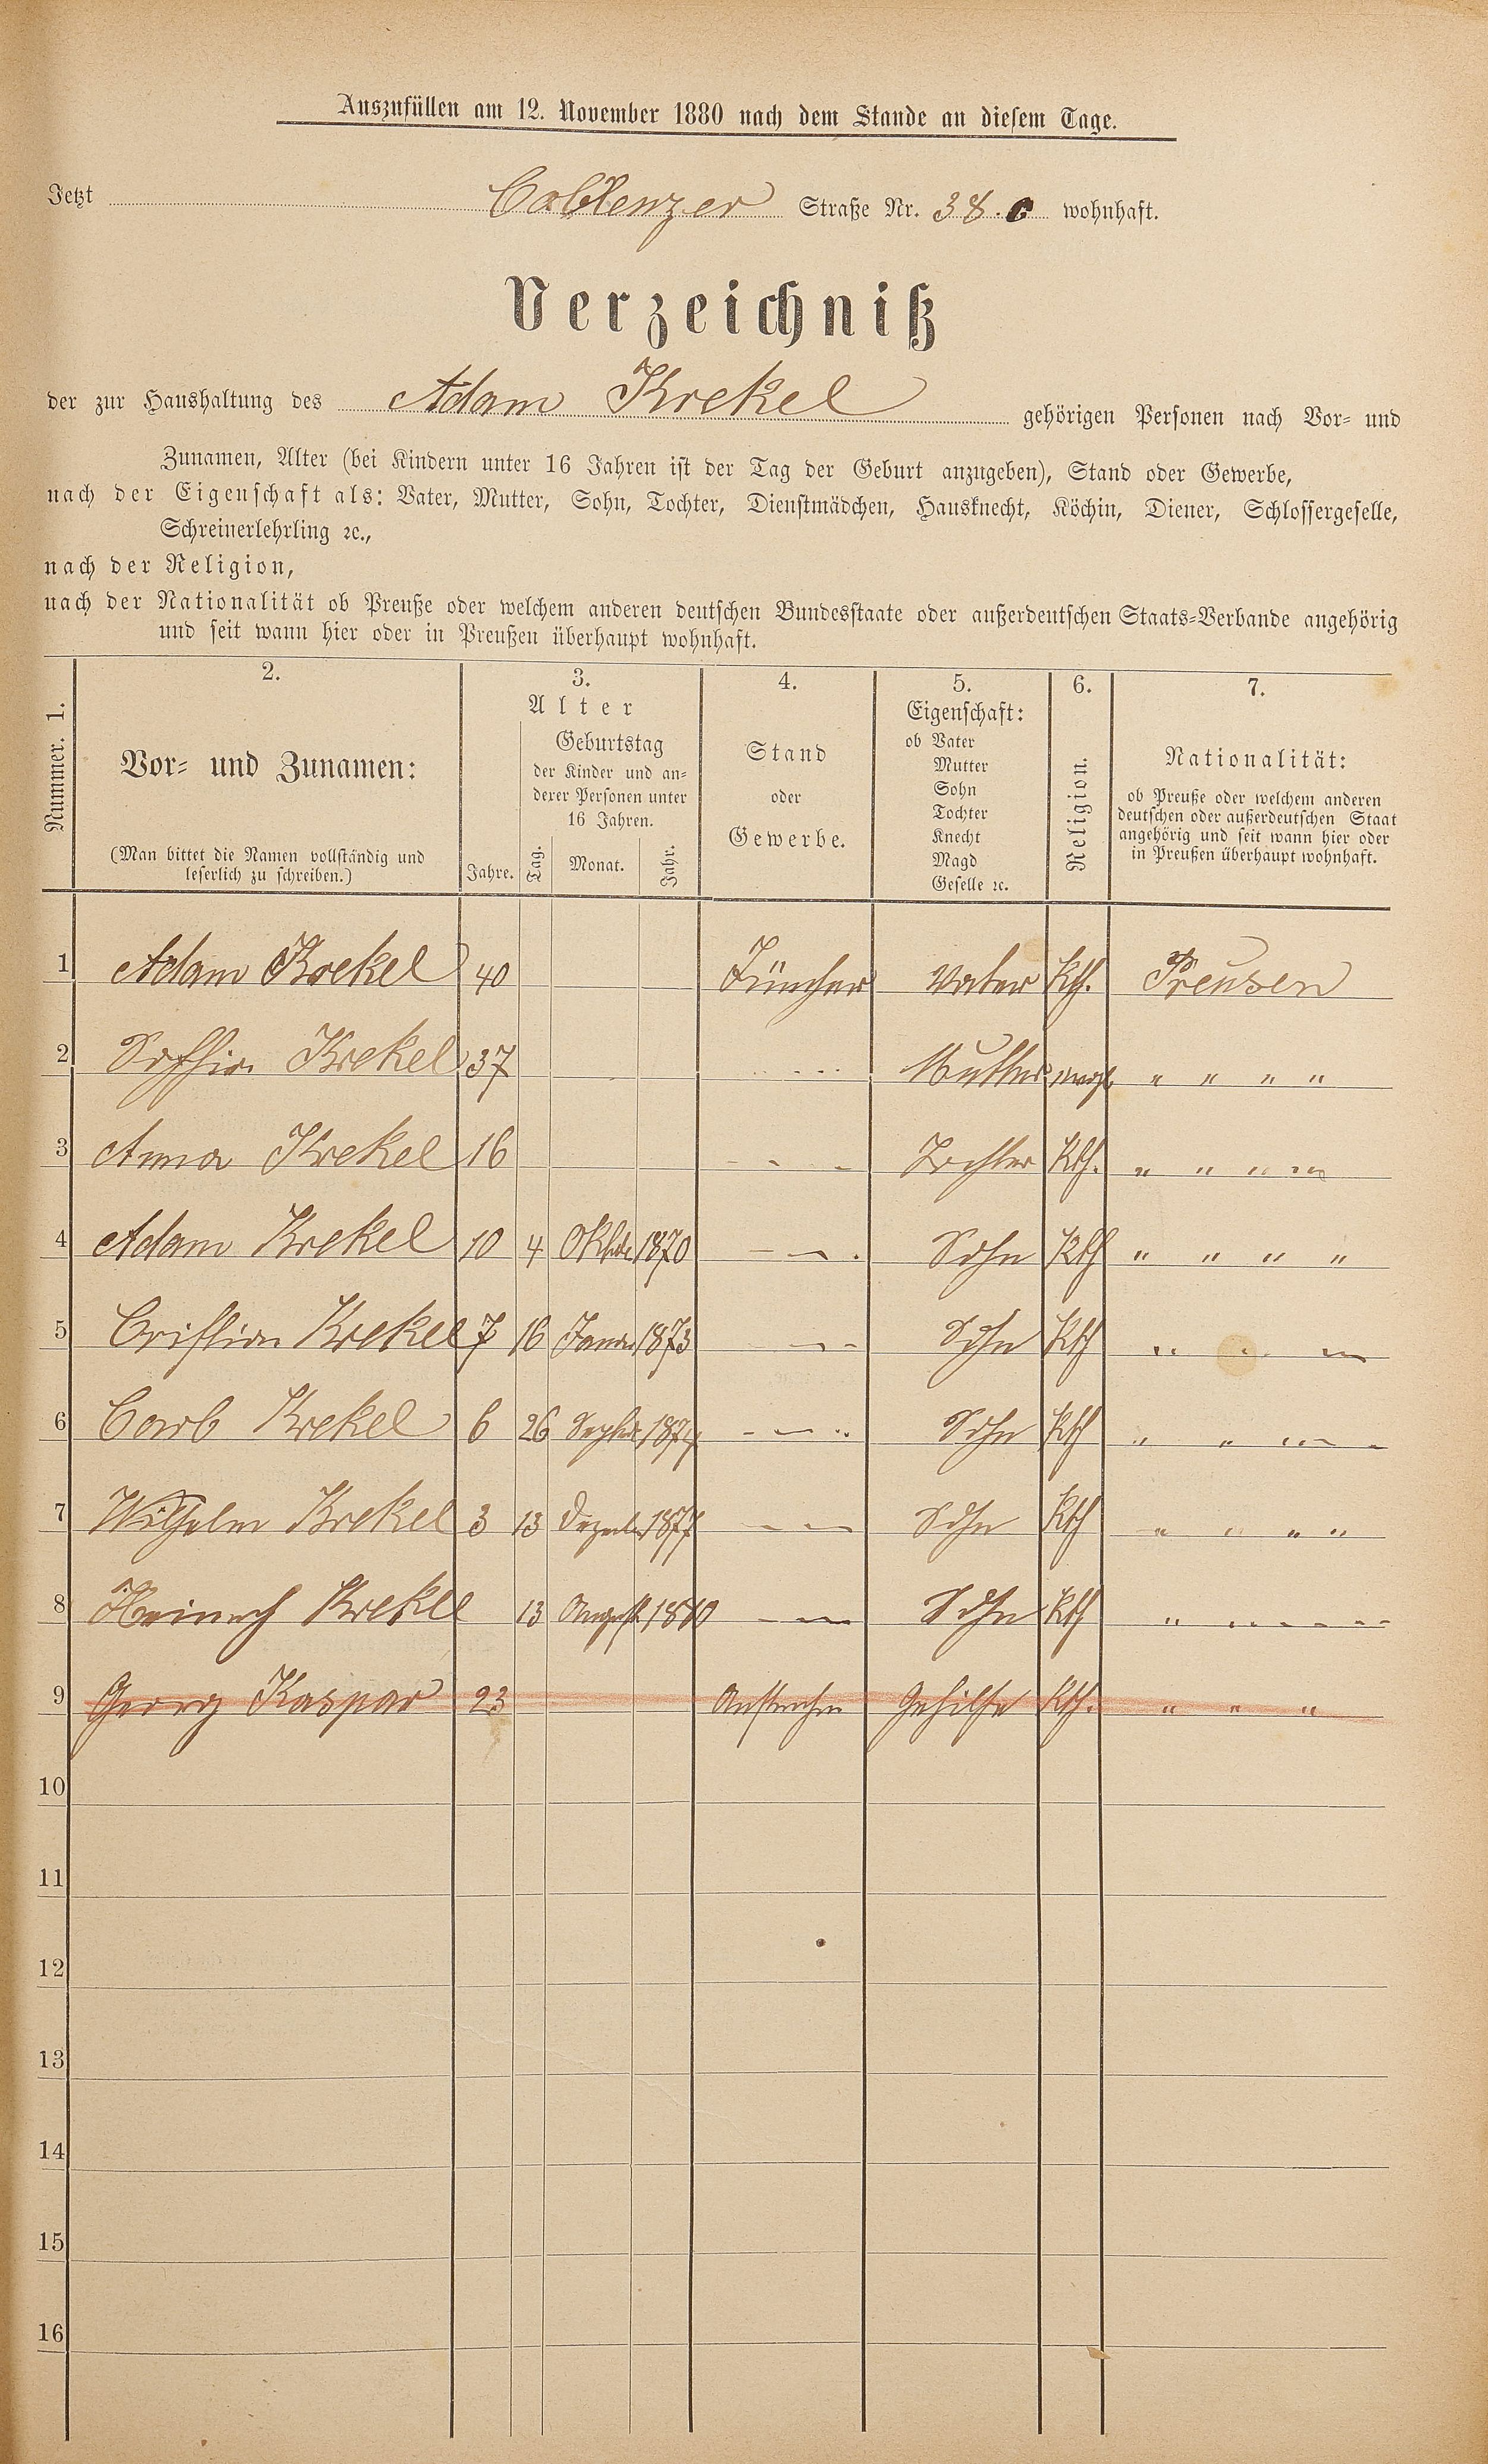 Auszufüllen am 12. November 1880 nach dem Stande an diesem Tage.
Jetzt Coblenzer Straße Nr. 38.c wohnhaft.
Verzeichniß
der zur Haushaltung des Adam Krekel gehörigen Personen nach Vor- und
Zunamen, Alter (bei Kindern unter 16 Jahren ist der Tag der Geburt anzugeben), Stand oder Gewerbe,
nach der Eigenschaft als: Vater, Mutter, Sohn, Tochter, Dienstmädchen, Hausknecht, Köchin, Diener, Schlossergeselle,
Schreinerlehrling ꝛc.,
nach der Religion,
nach der Nationalität ob Preuße oder welchem anderen deutschen Bundesstaate oder außerdeutschen Staats-Verbande angehörig
und seit wann hier oder in Preußen überhaupt wohnhaft.
Nummer. 1.
2.
Vor- und Zunamen:
(Man bittet die Namen vollständig und
leserlich zu schreiben.)
3.
Alter
Geburtstag
der Kinder und an-
derer Personen unter
16 Jahren.
Jahre. Tag. Monat. Jahr.
4.
Stand
oder
Gewerbe.
5.
Eigenschaft:
ob Vater
Mutter
Sohn
Tochter
Knecht
Magd
Geselle ꝛc.
6.
Religion.
7.
Nationalität:
ob Preuße oder welchem anderen
deutschen oder außerdeutschen Staat
angehörig und seit wann hier oder
in Preußen überhaupt wohnhaft.
1 Adam Krekel 40 Tüncher Vater Kth. Preusen
2 Soffia Krekel 37 Mutter " " " "
3 Anna Krekel 16 - - - Tochter Kth. " " " "
4 Adam Krekel 10 4 Oktbr 1870 - - . Sohn Kth " " " "
5 Cristian Krekel 7 16 Januar 1873 - - Sohn Kth " " "
6 Carl Krekel 6 26 Septbr 1874 - - " Sohn Kth " " " -
7 Wilhelm Krekel 3 13 Dezemb 1877 - - Sohn Kth " " " "
8 Heinrich Krekel 13 August 1880 - - Sohn Kth " " - - -
9 Georg Kaspar 23 Anstreicher Gehilfe Kth. " " "
10
11
12
13
14
15
16